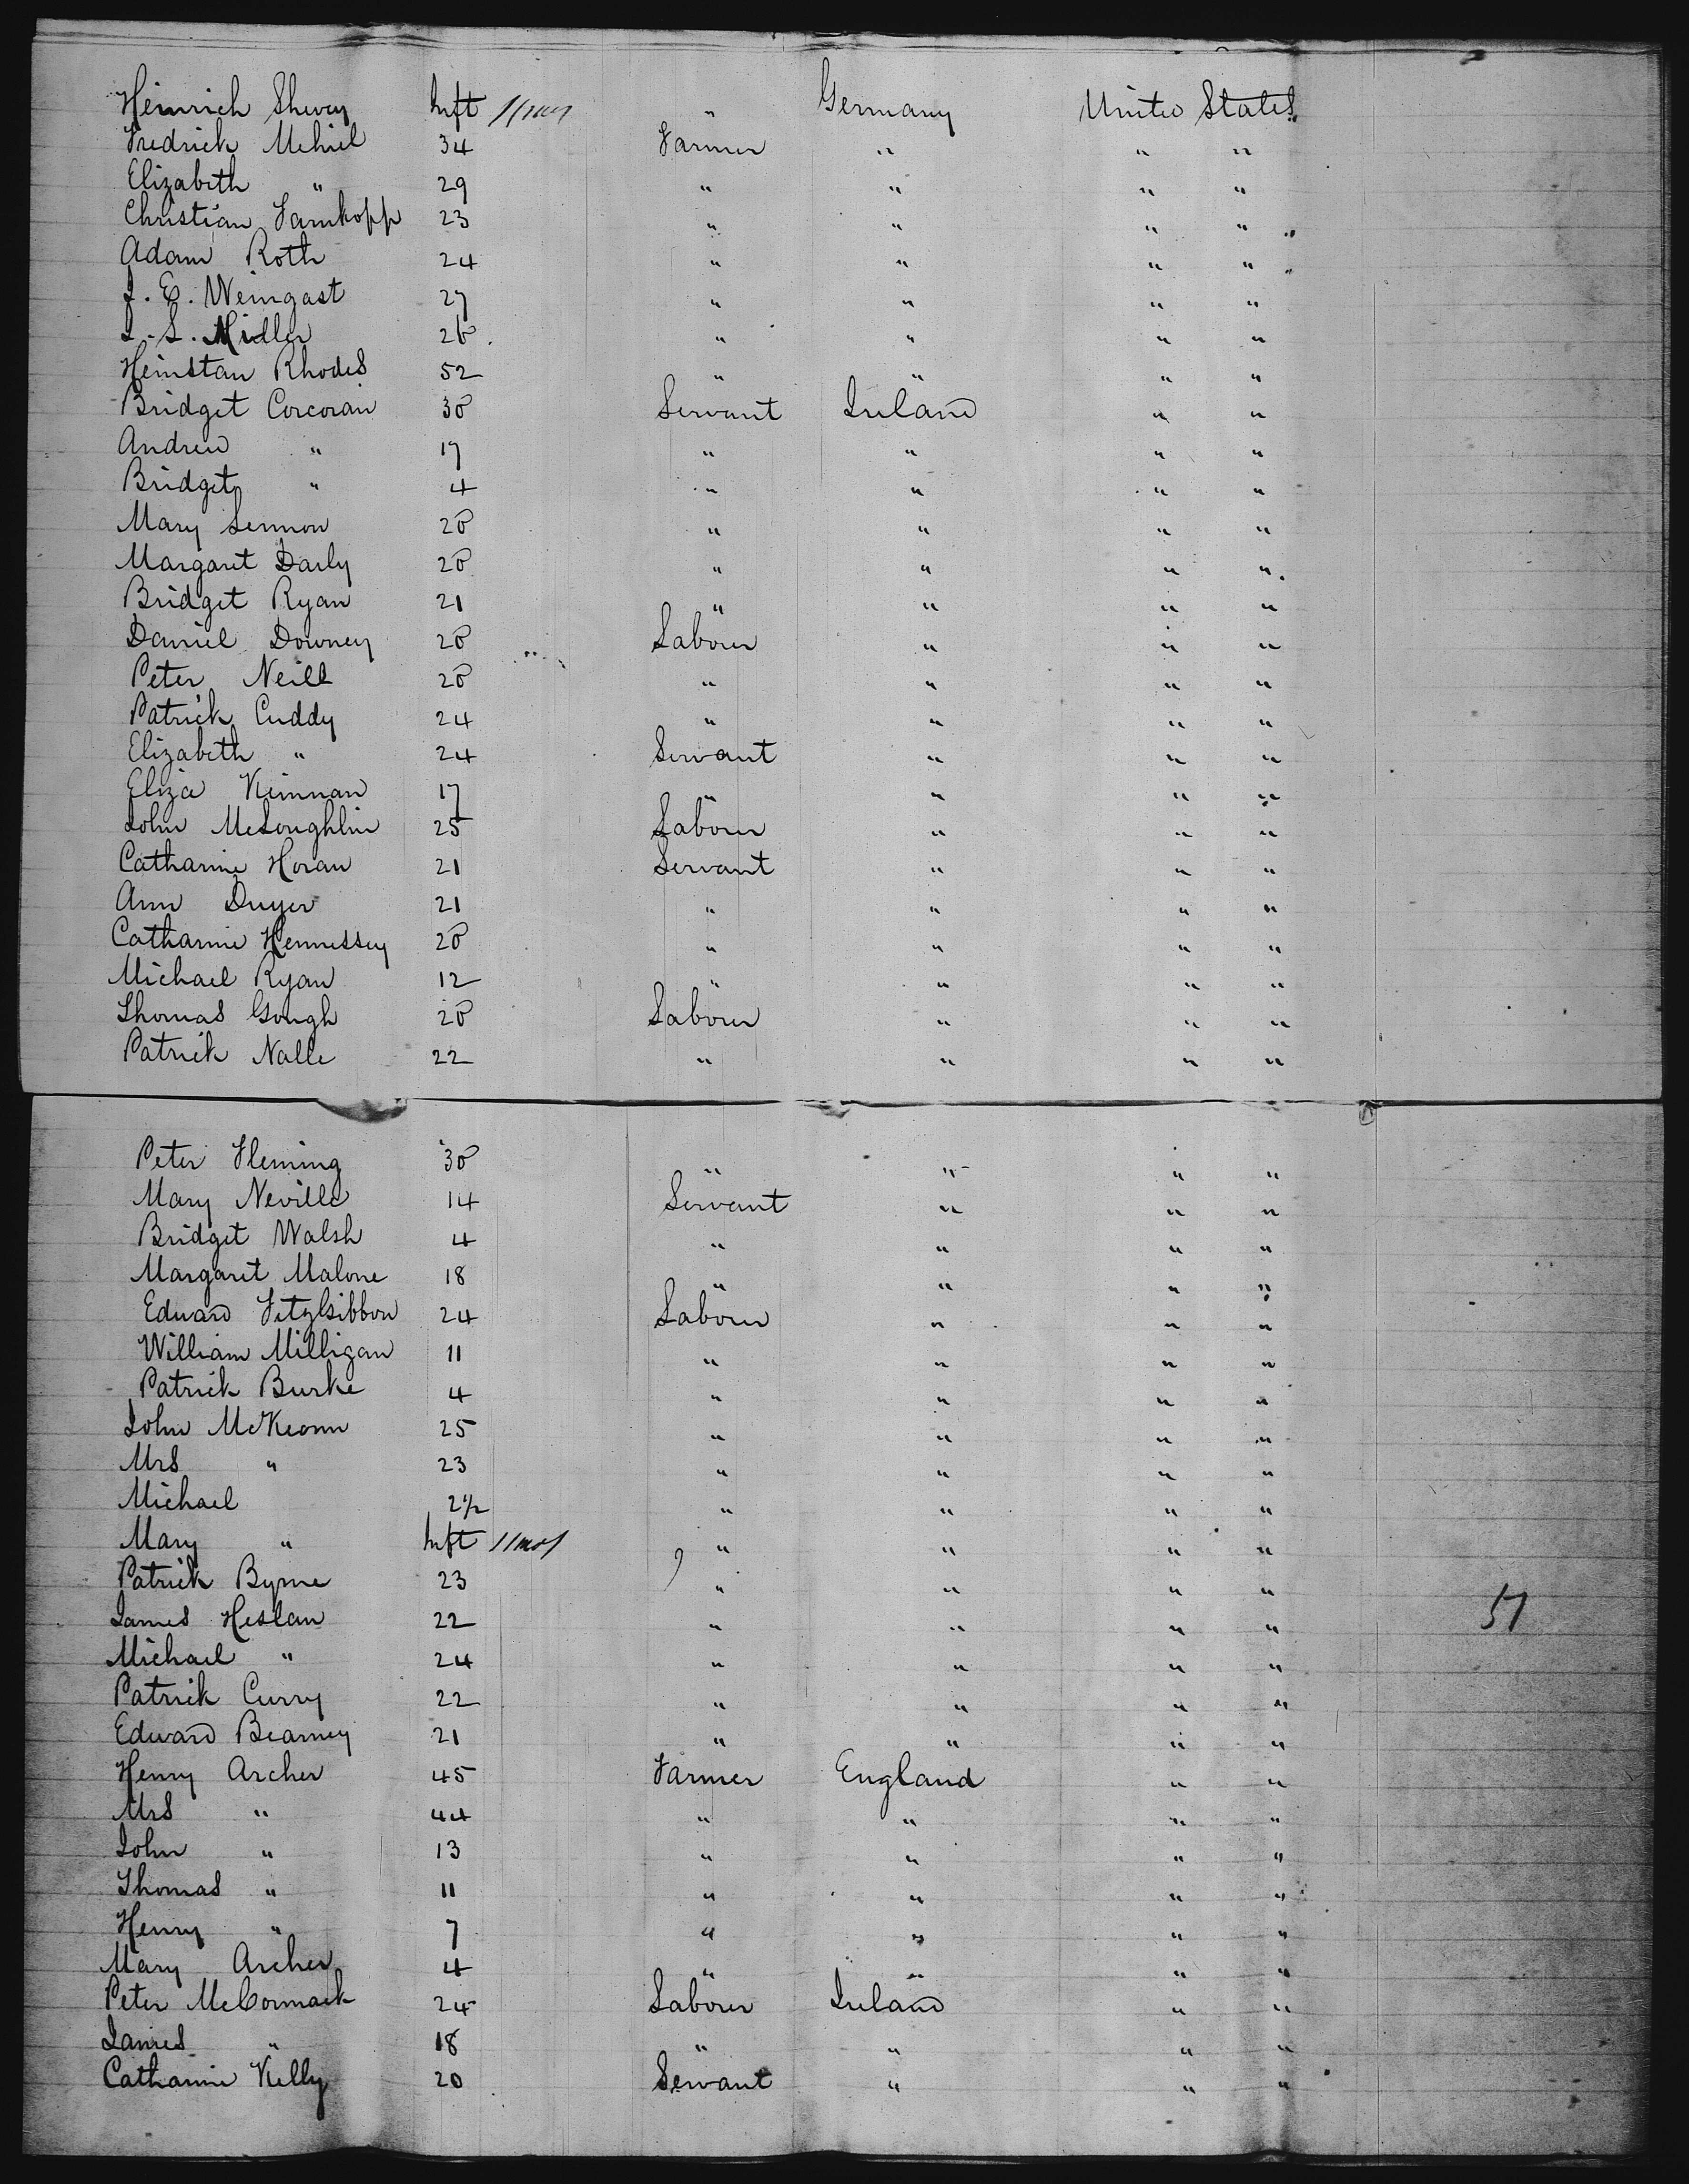 Heinrich Shevey Inft 11mos " Germany United States
Fredrick Mehiel 34 Farmer " " "
Elizabeth " 29 " " " "
Christian Farnkopp 23 " " " "
Adam Roth 24 " " " "
J. E. Weingast 27 " " " "
L. S. Miller 28 " " " "
Heinstan Rhodes 52 " " " "
Bridget Corcoran 30 Servant Ireland " "
Andrew " 17 " " " "
Bridget " 4 " " " "
Mary Lennon 20 " " " "
Margaret Darly 20 " " " "
Bridget Ryan 21 " " " "
Daniel Downey 20 Laborer " " "
Peter Neill 20 " " " "
Patrick Cuddy 24 " " " "
Elizabeth " 24 Servant " " "
Eliza Kinnan 17 " " " "
John McLoughlin 25 Laborer " " "
Catharine Horan 21 Servant " " "
Ann Dwyer 21 " " " "
Catharine Hennessey 20 " " " "
Michael Ryan 12 " " " "
Thomas Gough 20 Laborer " " "
Patrick Nalle 22 " " " "
Peter Fleming 30 " " " "
Mary Neville 14 Servant " " "
Bridget Walsh 4 " " " "
Margaret Malone 18 " " " "
Edward FitzGibbon 24 Laborer " " "
William Milligan 11 " " " "
Patrick Burke 4 " " " "
John McKeonn 25 " " " "
Mrs " 23 " " " "
Michael 2 1/2 " " " "
Mary " Inft 11mos " " " "
Patrick Byrne 23 " " " "
James Heslan 22 " " " " 51
Michael " 24 " " " "
Patrick Curry 22 " " " "
Edward Bearney 21 " " " "
Henry Archer 45 Farmer England " "
Mrs " 44 " " " "
John " 13 " " " "
Thomas " 11 " " " "
Henry " 7 " " " "
Mary Archer 4 " " " "
Peter McCormack 24 Laborer Ireland " "
James " 18 " " " "
Catharine Kelly 20 Servant " " "